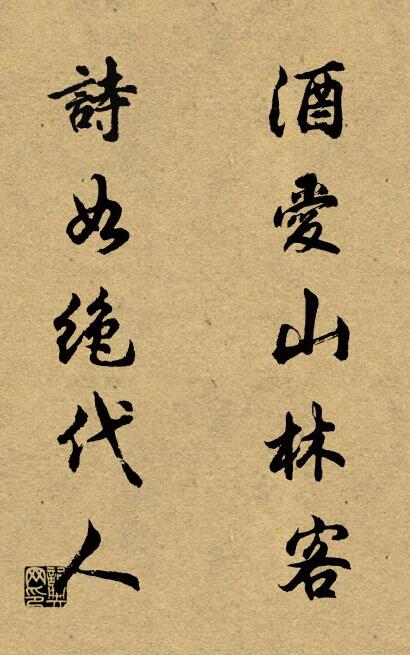 酒愛山林客
詩如絶代人